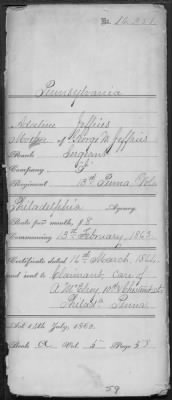 No. 16.251.
Pennsylvania
Adaline Jeffries
Mother of George W. Jeffries
Rank Sergeant
Company "G"
Regiment 13th Penna Vols
Philadelphia Agency
Rate per month, $8
Commencing 13th February, 1863.
Certificate dated 16th March, 1864.
and sent to Claimant, care of
A. McElroy, 10th & Chestnut sts
Philada Penna
Act 14th July, 1862.
Book A Vol. 5 Page 58
59